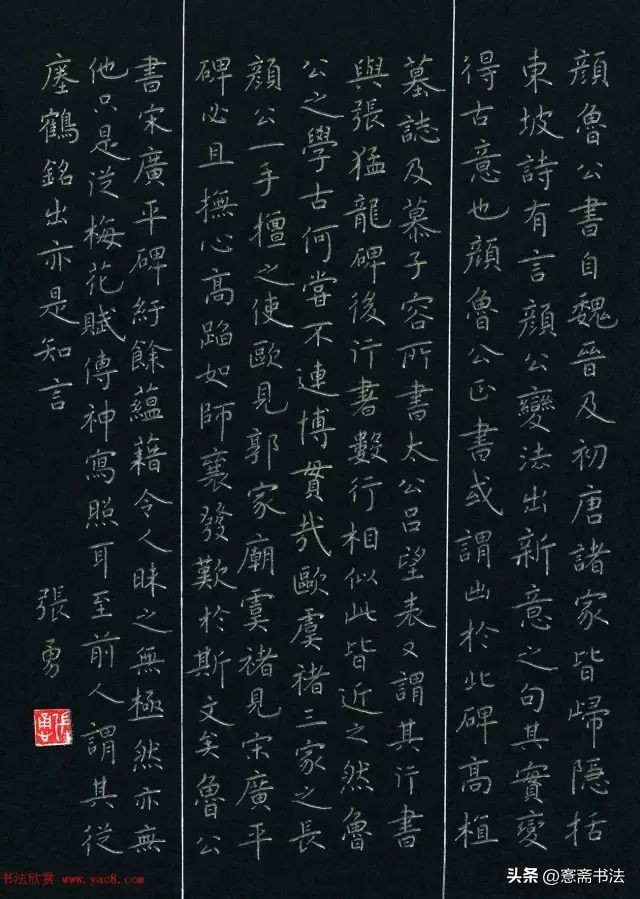 顏魯公書自魏晉及初唐諸家皆歸隱括
東坡詩有言顏公變法出新意之句其實變
得古意也顏魯公正書或謂出於此碑高植
墓誌及慕子容所書太公呂望表又謂其行書
與張猛龍碑後行書數行相似此皆近之然魯
公之學古何嘗不連博貫哉歐虞褚三家之長
顏公一手擅之使歐見郭家廟虞褚見宋廣平
碑必且撫心高蹈如師襄發歎於斯文矣魯公
書宋廣平碑紆餘蘊藉令人味之無極然亦無
他只是從梅花賦傳神寫照耳至前人謂其從
瘞鶴銘出亦是知言
張勇
张勇
书法欣赏 www.yac8.com
头条 @愙斋书法